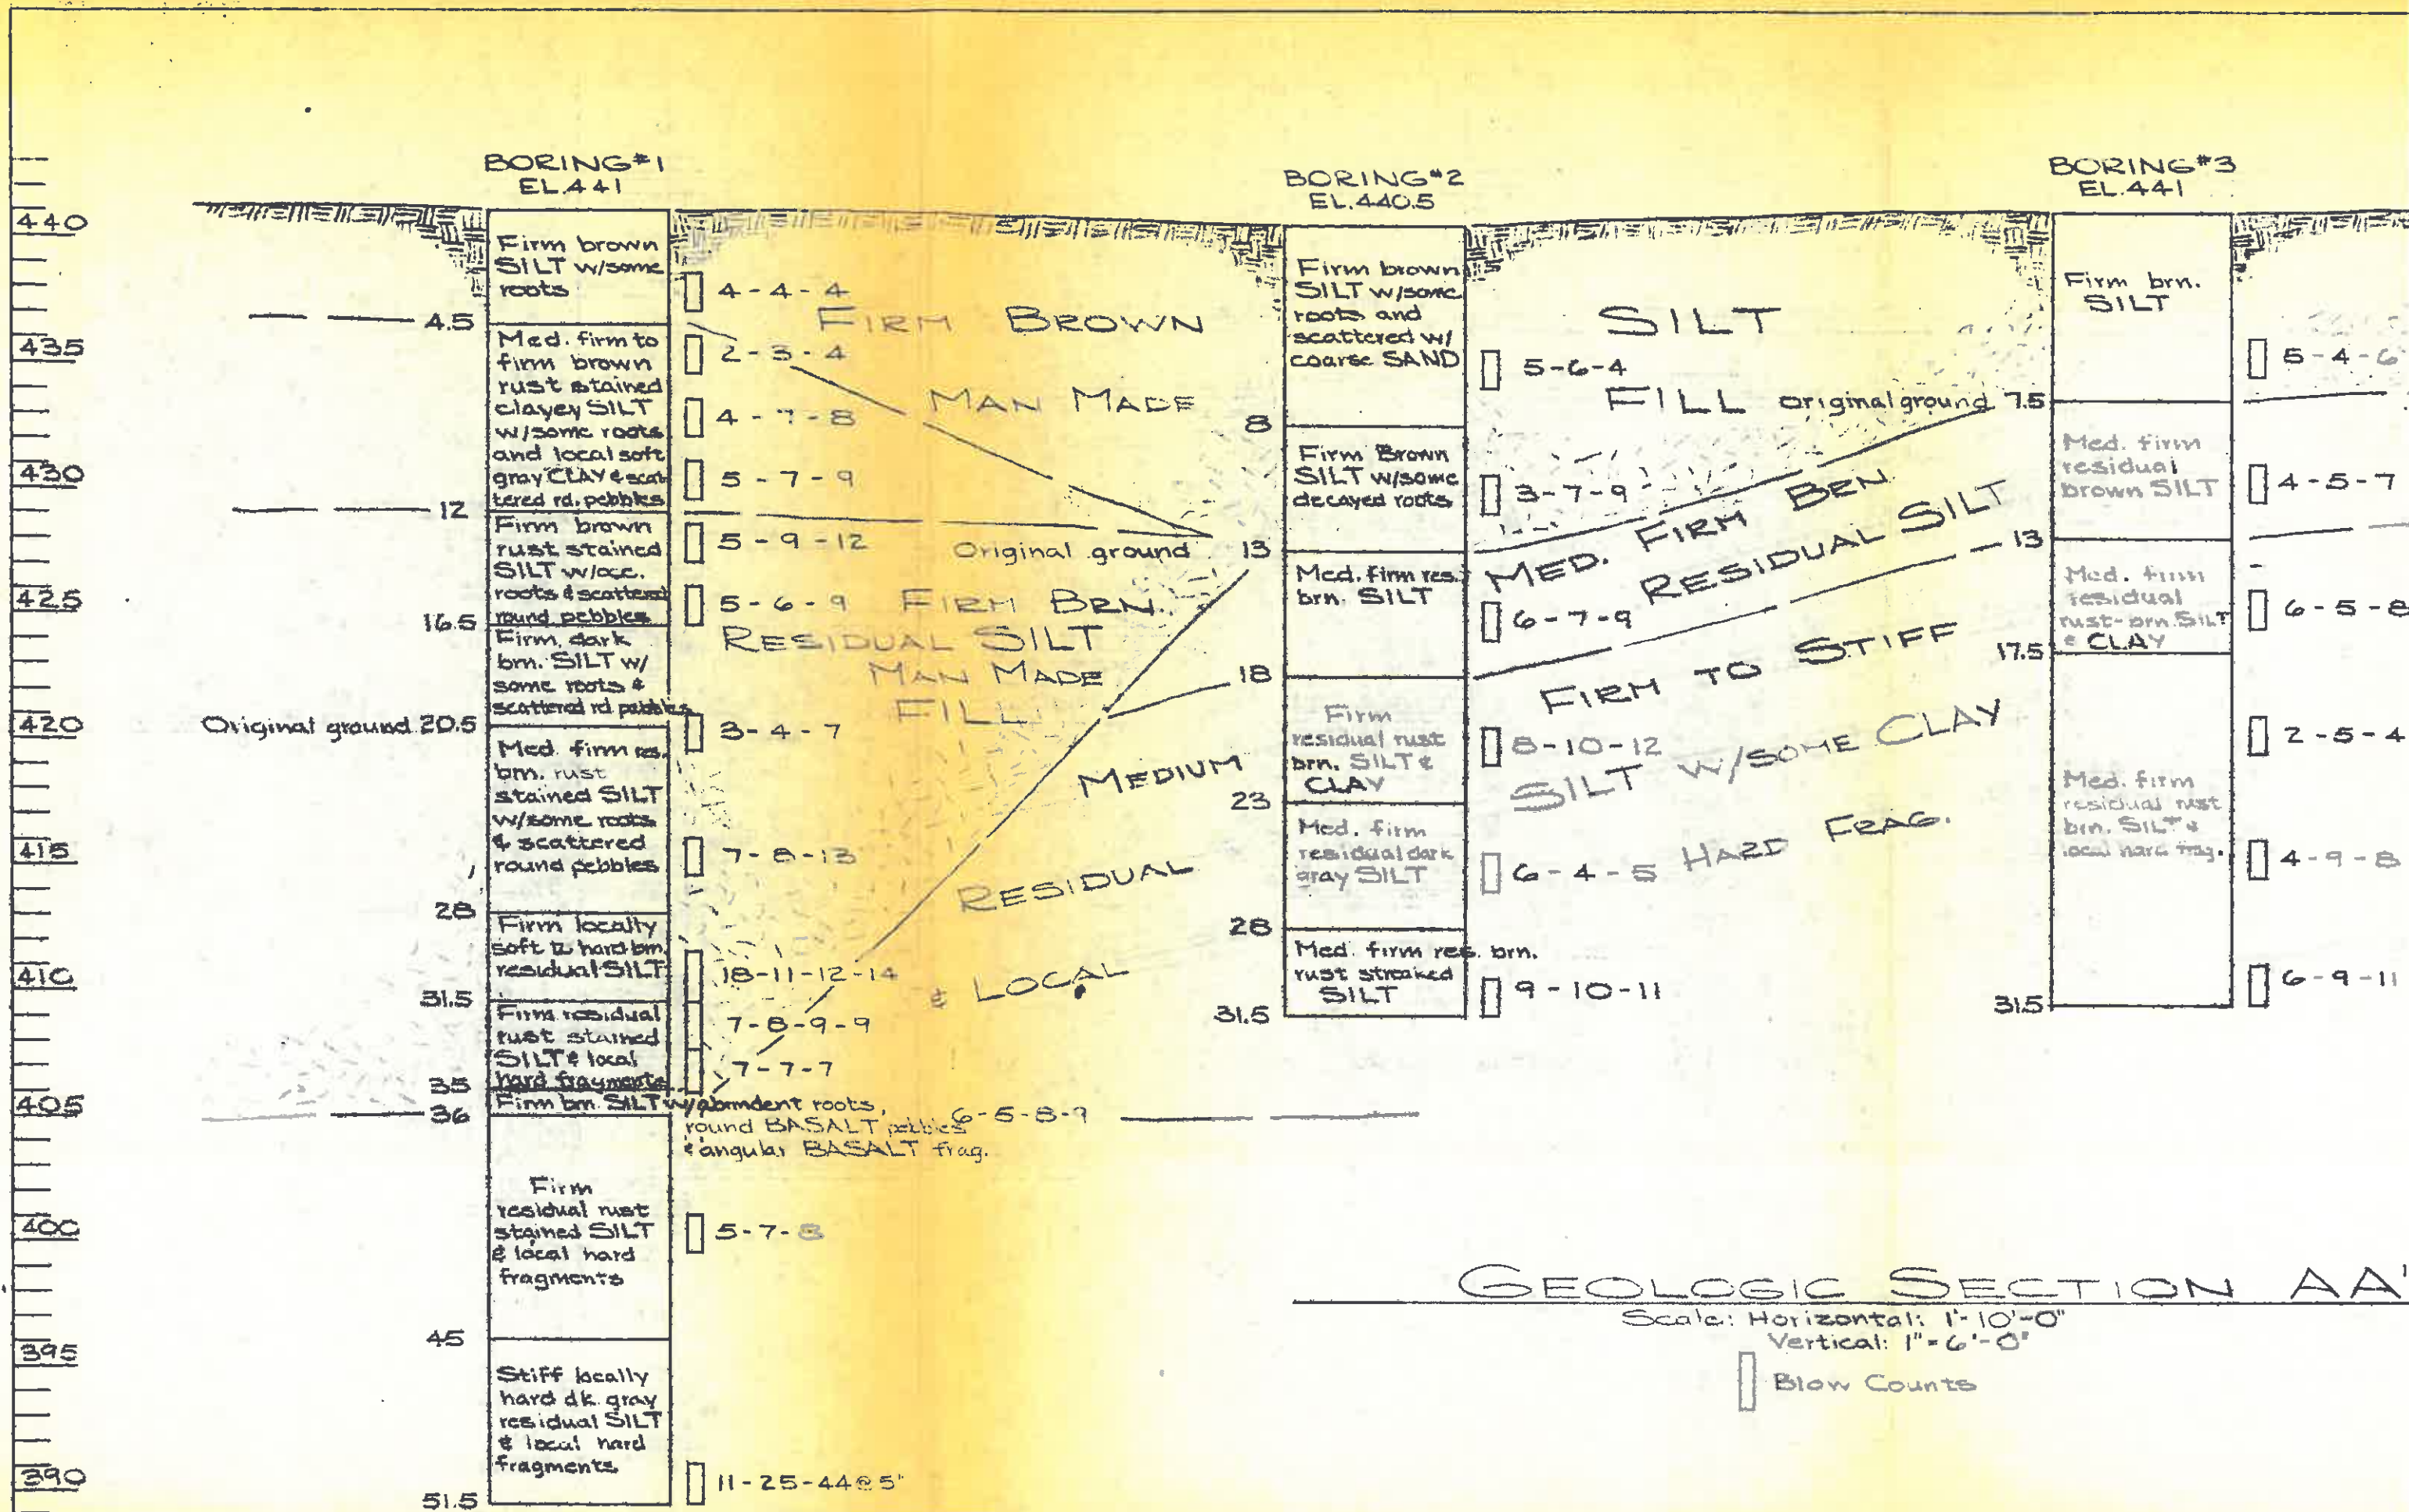 BORING #1
EL. 441
BORING #2
EL. 440.5
BORING #3
EL. 441
440
435
430
425
420
415
410
405
400
395
390
4.5
12
16.5
Original ground 20.5
28
31.5
35
36
45
51.5
Firm brown
SILT w/some
roots
Med. firm to
firm brown
rust stained
clayey SILT
w/some roots
and local soft
gray CLAY & scat
tered rd. pebbles
Firm brown
rust stained
SILT w/occ.
roots & scattered
round pebbles
Firm, dark
brn. SILT w/
some roots &
scattered rd pebbles
Med. firm res.
brn. rust
stained SILT
w/some roots
& scattered
round pebbles
Firm locally
soft to hard brn.
residual SILT
Firm residual
rust stained
SILT & local
hard fragments
Firm brn. SILT w/abundent roots,
round BASALT pebbles
& angular BASALT frag.
Firm
residual rust
stained SILT
& local hard
fragments
Stiff locally
hard dk. gray
residual SILT
& local hard
fragments
4-4-4
2-3-4
4-7-8
5-7-9
5-9-12
5-6-9
3-4-7
7-8-13
18-11-12-14
7-8-9-9
7-7-7
6-5-8-9
5-7-8
11-25-44@5"
FIRM BROWN
MAN MADE
Original ground
FIRM BRN.
RESIDUAL SILT
MAN MADE
FILL
MEDIUM
RESIDUAL
& LOCAL
8
13
18
23
28
31.5
Firm brown
SILT w/some
roots and
scattered w/
coarse SAND
Firm Brown
SILT w/some
decayed roots
Med. firm res.
brn. SILT
Firm
residual rust
brn. SILT &
CLAY
Med. firm
residual dark
gray SILT
Med. firm res. brn.
rust streaked
SILT
5-6-4
3-7-9
6-7-9
8-10-12
6-4-5
9-10-11
SILT
FILL
Original ground
MED. FIRM BRN.
RESIDUAL SILT
FIRM TO STIFF
SILT W/SOME CLAY
HARD FRAG.
7.5
13
17.5
31.5
Firm brn.
SILT
Med. firm
residual
brown SILT
Med. firm
residual
rust-brn. SILT
& CLAY
Med. firm
residual rust
brn. SILT &
local hard frag.
5-4-6
4-5-7
6-5-8
2-5-4
4-9-8
6-9-11
GEOLOGIC SECTION AA'
Scale: Horizontal: 1"-10'-0"
Vertical: 1"=6'-0"
Blow Counts